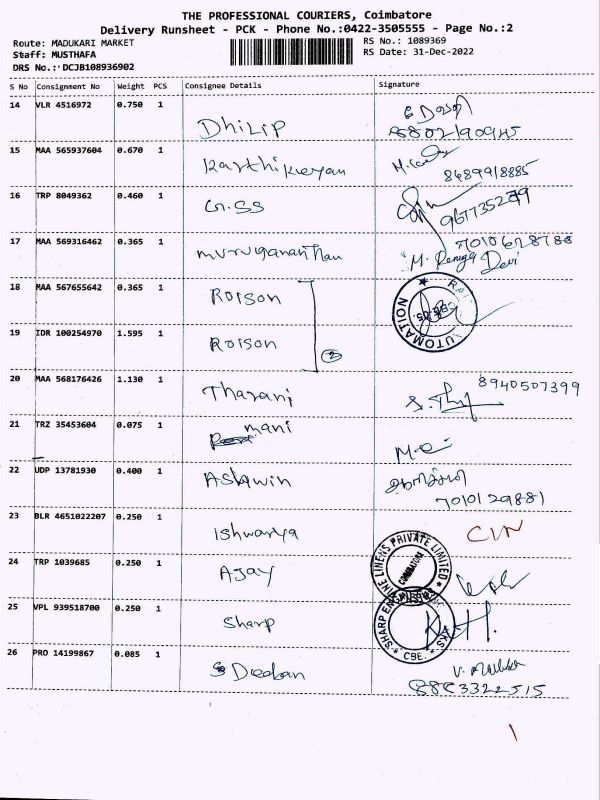 THE PROFESSIONAL COURIERS, Coimbatore
Delivery Runsheet - PCK - Phone No.:0422-3505555 - Page No.:2
Route: MADUKARI MARKET
Staff: MUSTHAFA
DRS No.: DCJB108936902
RS No.: 1089369
RS Date: 31-Dec-2022
S No Consignment No Weight PCS Consignee Details Signature
14 VLR 4516972 0.750 1 Dhilip
8802190945
15 MAA 565937604 0.670 1 Karthikeyan
8489918885
16 TRP 8049362 0.460 1 G.SS
9677352
17 MAA 569316462 0.365 1 muruganantham 7010628788
M. Renuga Devi
18 MAA 567655642 0.365 1 Roison
AUTOMATION
19 IDR 100254970 1.595 1 Roison
2
20 MAA 568176426 1.130 1 Tharani 8940507399
21 TRZ 35453604 0.075 1 mani
22 UDP 13781930 0.400 1 Ashwin
7010129881
23 BLR 4651022207 0.250 1 Ishwarya
LINENS PRIVATE LIMITED
COIMBATORE
24 TRP 1039685 0.250 1 Ajay
25 VPL 939518700 0.250 1 Sharp
SHARP
CBE.
26 PRO 14199867 0.085 1 Deeban
8883322515